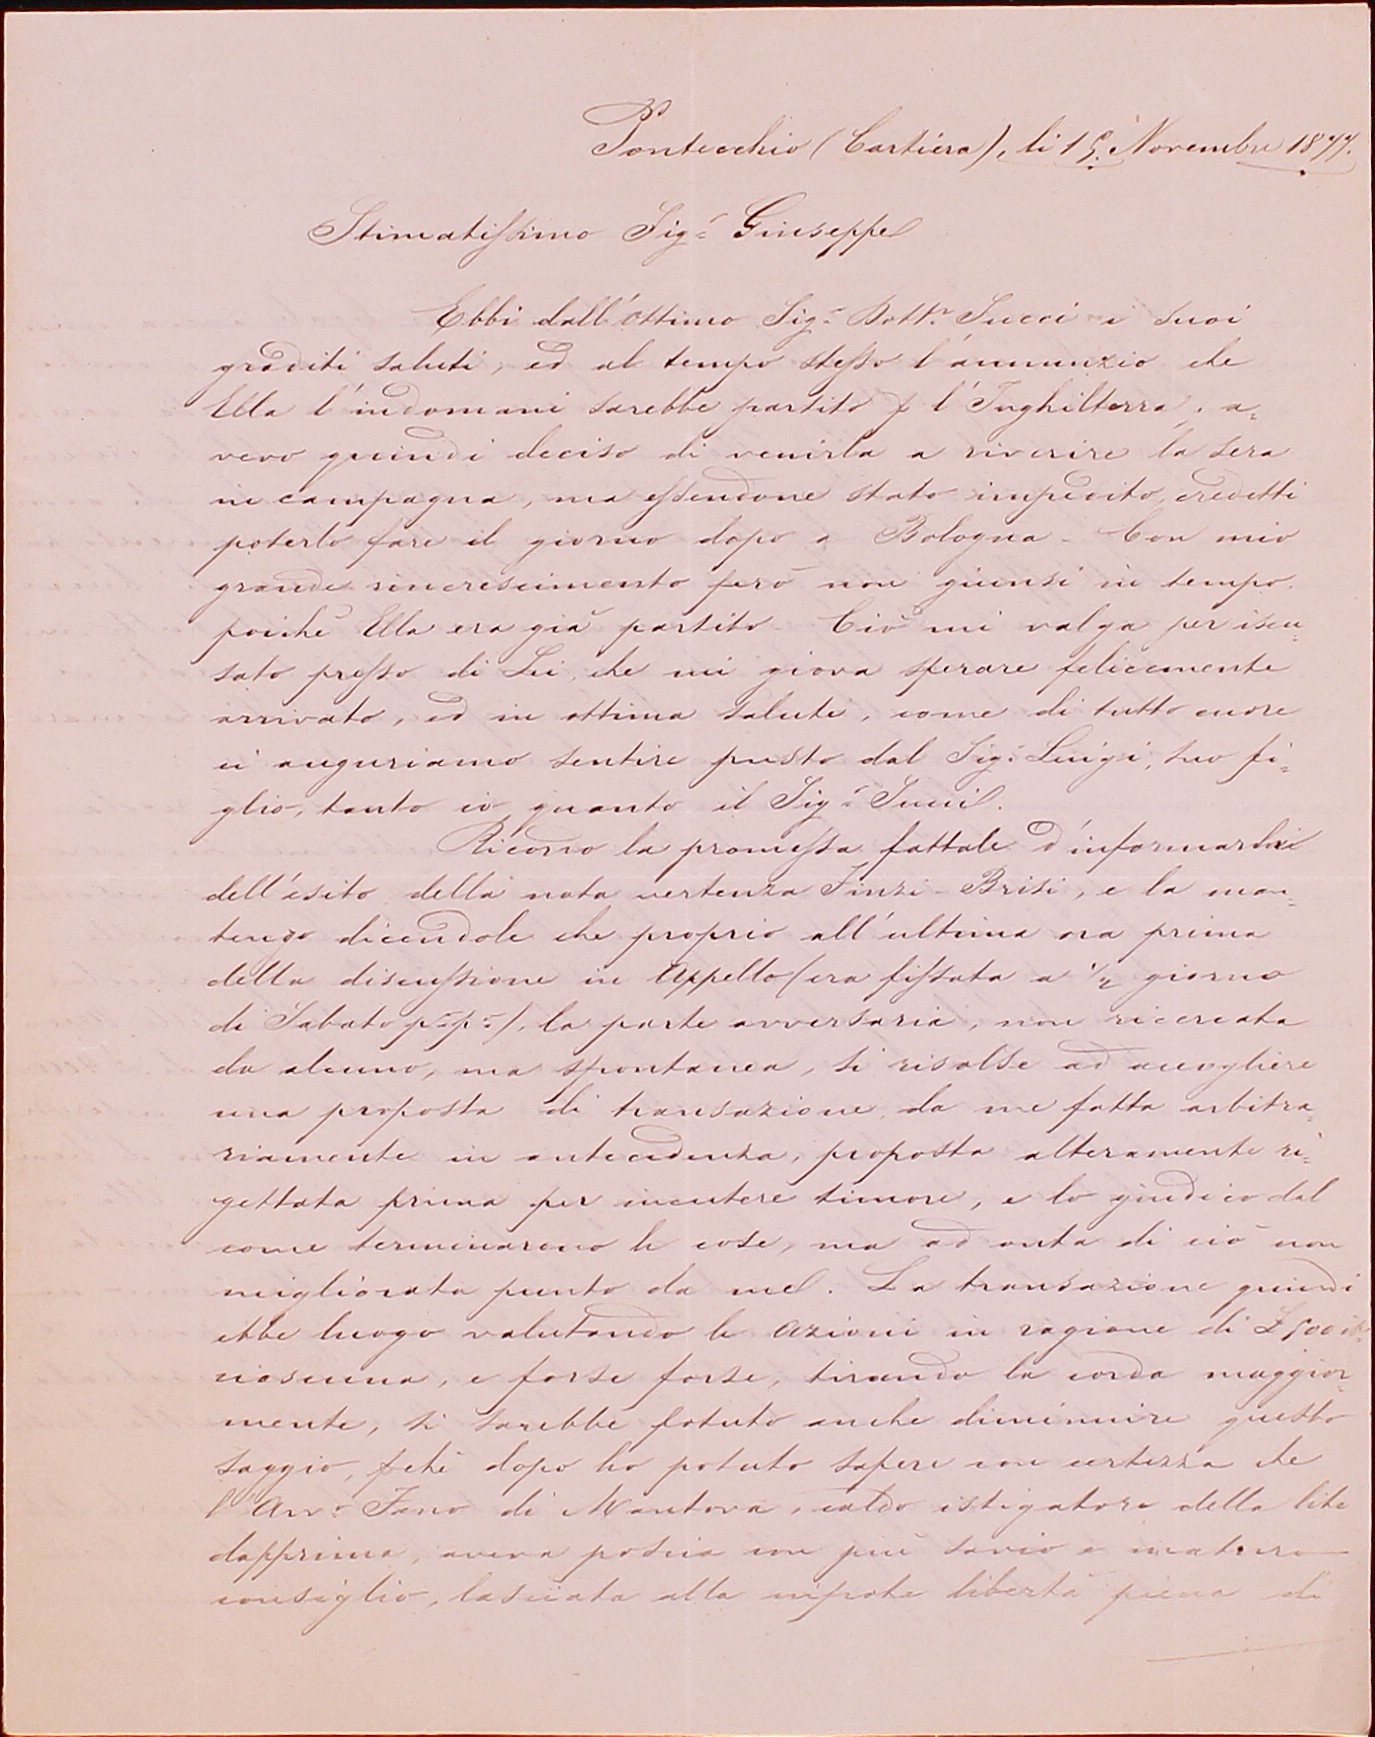 Pontecchio (Cartiera), li 15. Novembre 1877.
Stimatissimo Sigr. Giuseppe
Ebbi dall'ottimo Sigr. Dottr. Succi i suoi
graditi saluti, ed al tempo stesso l'annunzio che
Ella l'indomani sarebbe partito p l'Inghilterra, a=
vevo quindi deciso di venirla a riverire la sera
in campagna, ma essendone stato impedito, credetti
poterlo fare il giorno dopo a Bologna. Con mio
grande rincrescimento però non giunsi in tempo,
poichè Ella era già partito. Ciò mi valga per iscu=
sato presso di Lei, che mi giova sperare felicemente
arrivato, ed in ottima salute, come di tutto cuore
ci auguriamo sentire presto dal Sigr. Luigi, suo fi=
glio, tanto io, quanto il Sigr. Succi.
Ricordo la promessa fattale d'informarla
dell'esito della nota vertenza Finzi-Brisi, e la man=
tengo dicendole che proprio all'ultima ora prima
della discussione in Appello (era fissata a ½ giorno
di Sabato p.º p.º), la parte avversaria, non ricercata
da alcuno, ma spontanea, si risolse ad accogliere
una proposta di transazione, da me fatta arbitra=
riamente in antecedenza, proposta alteramente ri=
gettata prima per incutere timore, e lo giudico dal
come terminarono le cose, ma ad onta di ciò non
migliorata punto da me. La transazione quindi
ebbe luogo valutando le Azioni in ragione di £ 500
ciascuna, e forse forse, tirando la corda maggior=
mente, si sarebbe potuto anche diminuire questo
saggio, pchè dopo ho potuto sapere con certezza che
l'Avvo. Fano di Mantova, caldo istigatore della lite
dapprima, aveva poscia con più savio e maturo
consiglio, lasciata alla nipote libertà piena di